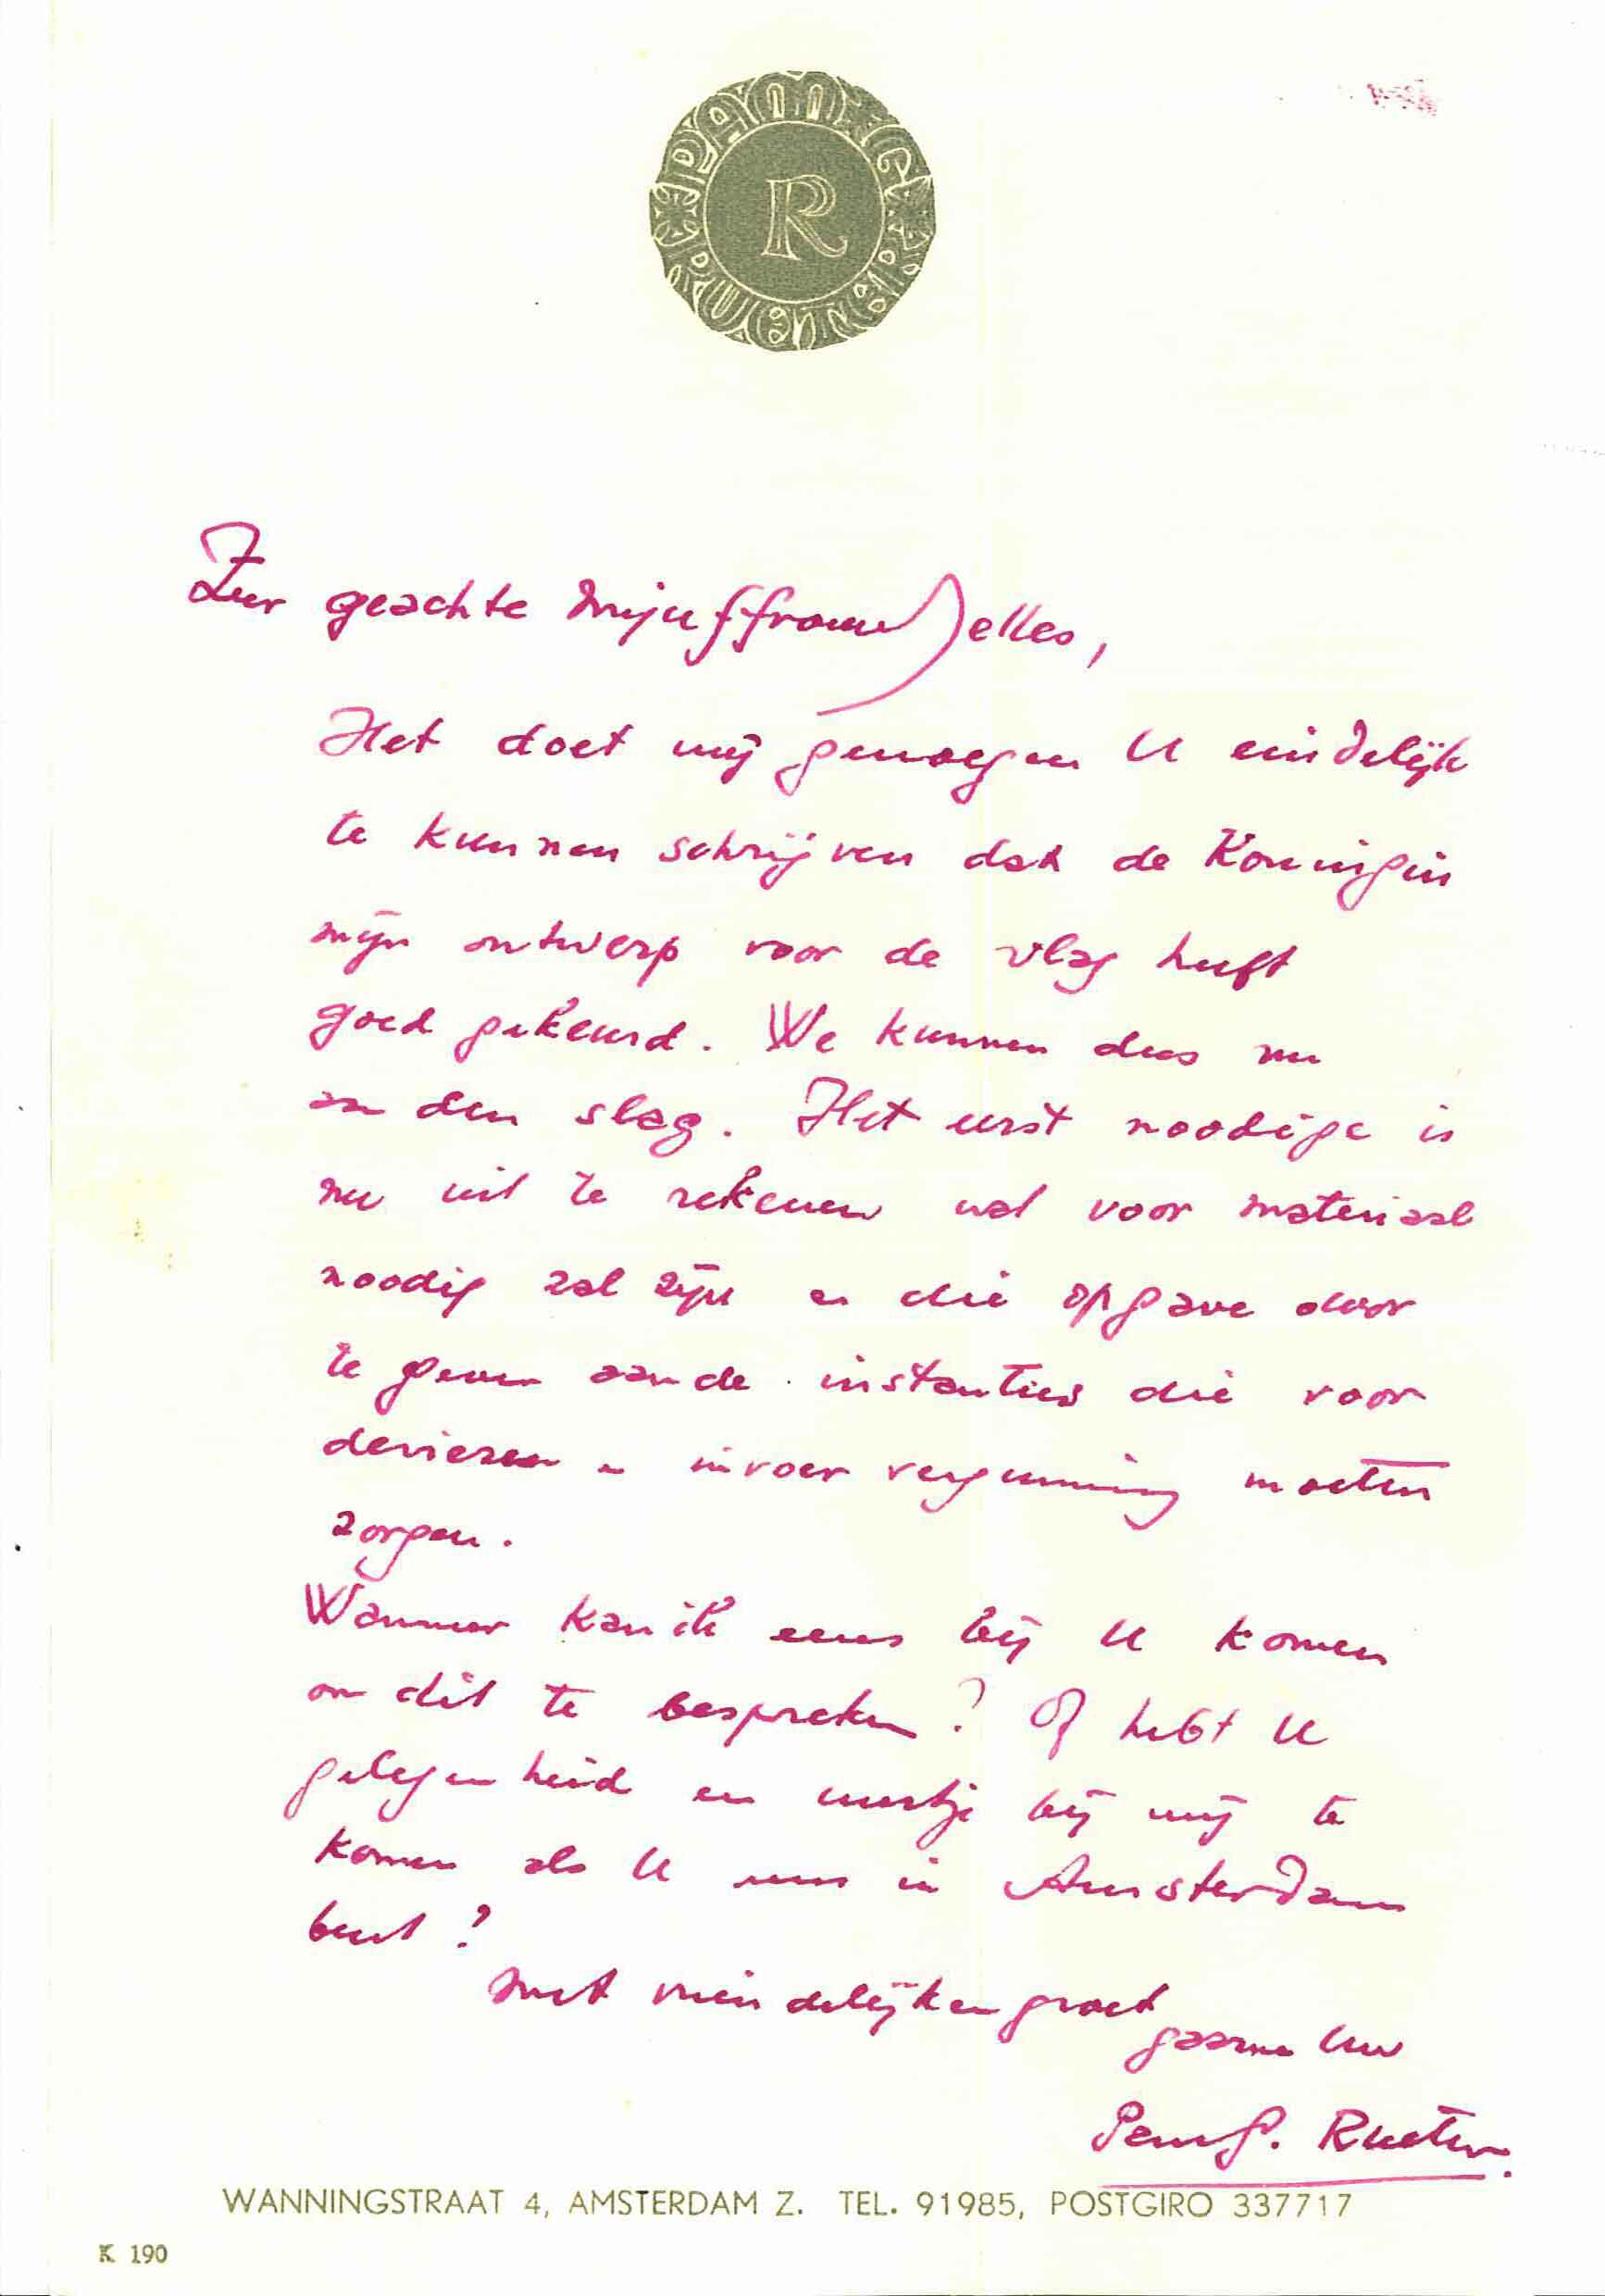 PAM·G·RUETER
R
Zeer geachte Mejuffrouw Jelles,
Het doet mij genoegen U eindelijk
te kunnen schrijven dat de Koningin
mijn ontwerp voor de vlag heeft
goed gekeurd. We kunnen dus nu
aan den slag. Het eerst noodige is
nu uit te rekenen wat voor materiaal
noodig zal zijn en die opgave door
te geven aan de instanties die voor
deviezen en invoer vergunning moeten
zorgen.
Wanneer kan ik eens bij U komen
om dit te bespreken? Of hebt U
gelegenheid een uurtje bij mij te
komen als U eens in Amsterdam
bent?
Met vriendelijken groet
gaarne Uw
Pam G. Rueter.
WANNINGSTRAAT 4, AMSTERDAM Z. TEL. 91985, POSTGIRO 337717
K 190